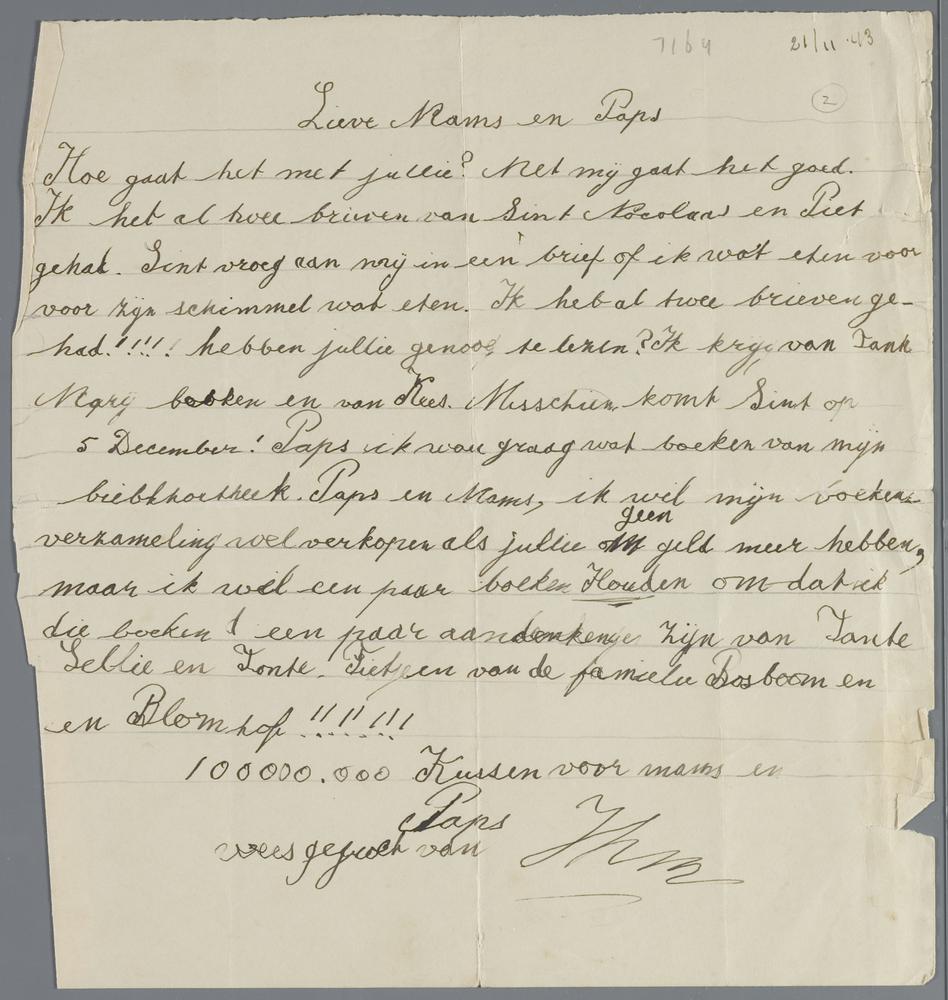 7164 21/11 43
2
Lieve Mams en Paps
Hoe gaat het met jullie? Met mij gaat het goed.
Ik heb al twee brieven van Sint Nocolaas en Piet
gehad. Sint vroeg aan mij in één brief of ik wat eten voor
voor zijn schimmel wat eten. Ik heb al twee brieven ge-
had!!!!! hebben jullie genoeg te lezen? Ik krijg van Tante
Marij boeken en van Kees. Misschien komt Sint op
5 December! Paps ik wou graag wat boeken van mijn
biebliotheek. Paps en Mams, ik wil mijn boeken-
verzameling wel verkopen als jullie geen geld meer hebben,
maar ik wil een paar boeken Houden om dat ik
die boeken een paar aandenkens zijn van Tante
Sellie en Tonte. Fietje en van de familie Bosboom en
en Blom hof !!!!!!!
100000.000 Kussen voor mams en
Paps
wees gegroet van